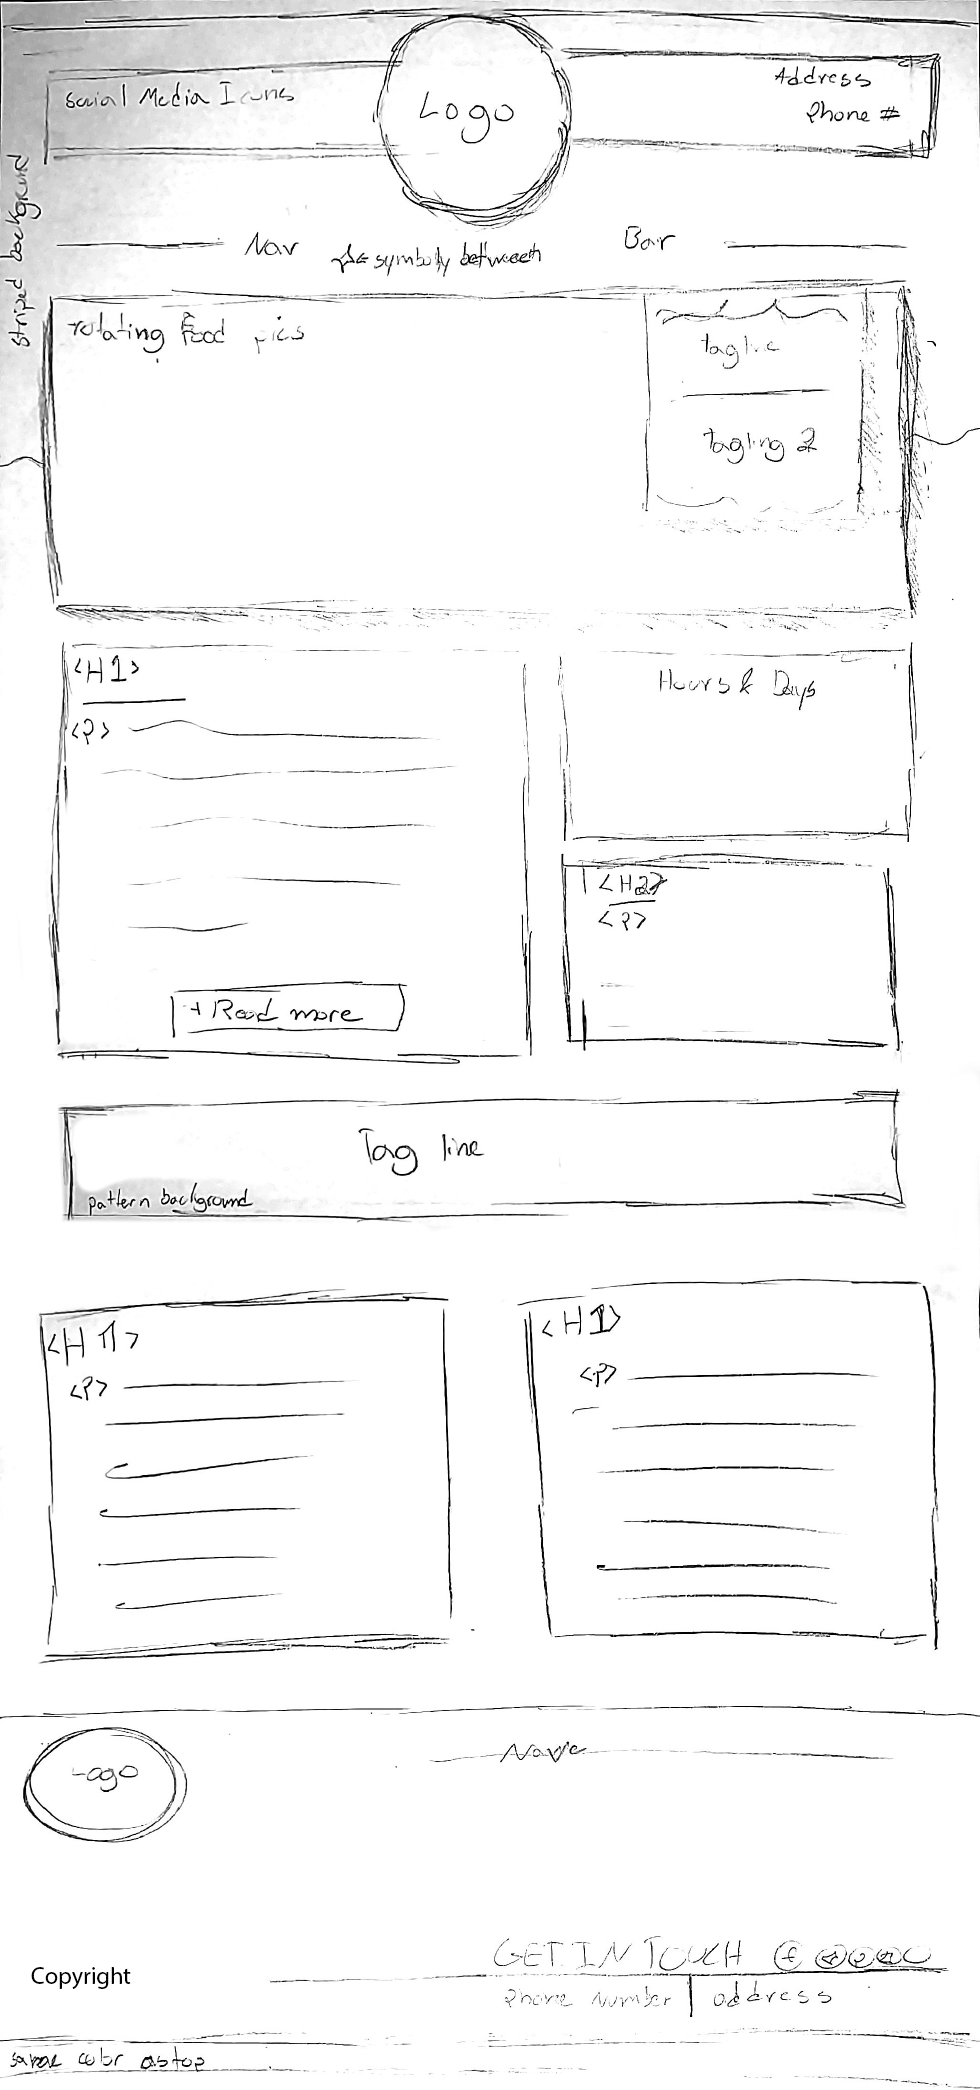 Social Media Icons
Logo
Address
Phone #
striped background
Nav
symbols between
Bar
rotating Food pics
tagline
tagling 2
<H1>
<P>
+ Read more
Hours & Days
<H2>
<P>
Tag line
pattern background
<H1>
<P>
<H1>
<P>
Logo
GET IN TOUCH f
Copyright
Phone Number | address
same color as top